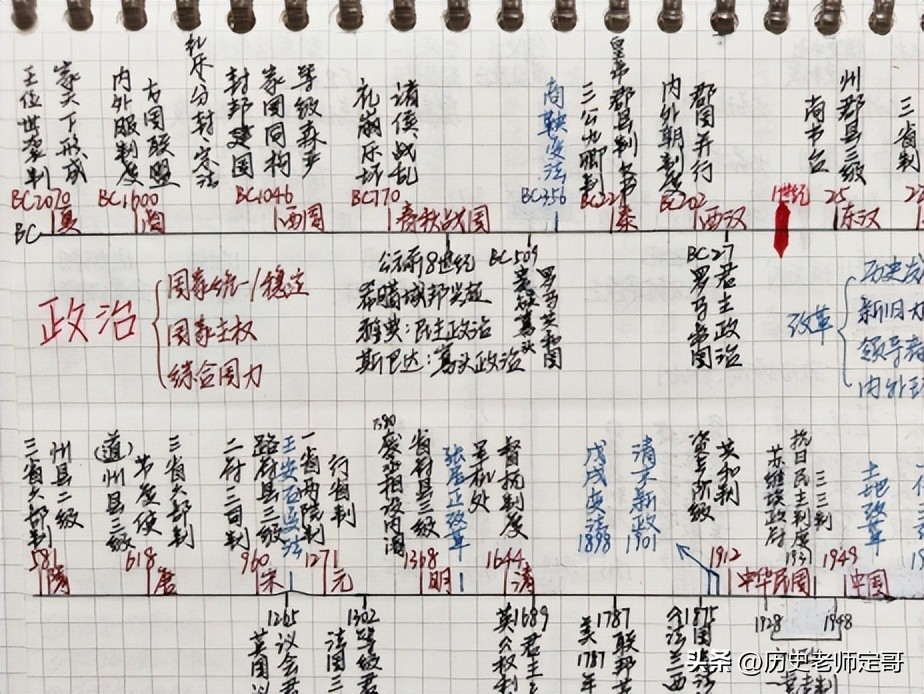 王位世袭制
家天下形成
内外服制度
方国联盟
礼乐分封宗法
封邦建国
家国同构
等级森严
礼崩乐坏
诸侯战乱
商鞅变法
三公九卿制
皇帝郡县制
内外朝制度
郡国并行
尚书台
州郡县三级
三省制
BC2070
BC1600
BC1046
BC770
BC356
BC221
BC202
1世纪
25
BC
夏
商
西周
春秋战国
秦
西汉
东汉
政治
国家统一/稳定
国家主权
综合国力
公元前8世纪
希腊城邦兴起
雅典:民主政治
斯巴达:寡头政治
BC509
贵族寡头
罗马共和国
BC27
罗马帝国
君主政治
改革
历史发
新旧力
领导者
内外环
三省六部制
州县二级
(道)州县三级
节度使
三省六部制
二府三司制
路府县三级
王安石变法
一省两院制
行省制
1380
废丞相设内阁
省府县三级
张居正改革
军机处
督抚制度
戊戌变法
1898
清末新政
1901
资产阶级
共和制
苏维埃政府
抗日民主制度
三三制
1931
土地改革
581
618
960
1271
1368
1644
1912
1949
隋
唐
宋
元
明
清
中华民国
中国
1265
英国议会君
1302
法国等级君
英1689
君主立
美1787
1787年
联邦
1875
法兰西
1928
1948
头条 @历史老师定哥